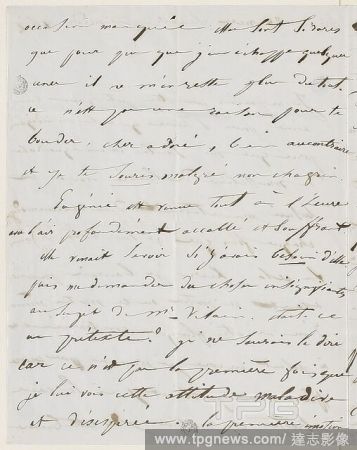 occasion manquée elle sont si rares
que pour peu que j'en échappe quelques
unes il ne m'en reste plus du tout.
ce n'est pas une raison pour te
bouder, cher adoré, bien au contraire
et je te souris malgré mon chagrin.
Eugénie est venue tout à l'heure
avec l'air profondément accablé et souffrant
elle venait savoir si j'avais besoin d'elle
puis me demander des choses insignifiantes
au sujet de Mr Vilain. était-ce
un prétexte? je ne saurais le dire
car ce n'est pas la première fois que
je lui vois cette attitude maladive
et désespérée. la première
TPG
www.tpgnews.com / 達志影像